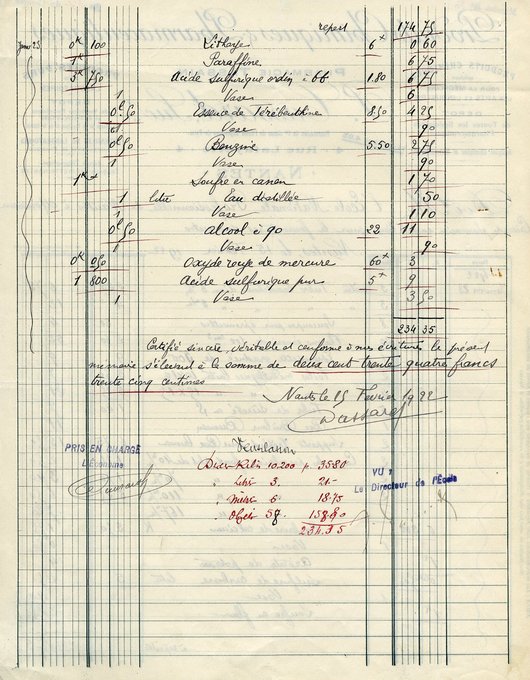 report 174 75
Janv 25 0k 100 Litharge 6× 0 60
1k Paraffine 6 75
3k 750 Acide sulfurique ordin. 66 1.80 6 75
1 Vase 6
0l 50 Essence de Térébenthine 8.50 4 25
1 Vase 90
0l 50 Benzine 5.50 2 75
1 Vase 90
1k Soufre en canon 1 70
1 litre Eau distillée 50
1 Vase 1 10
0l 50 alcool à 90 22 11
1 Vase 90
0k 050 Oxyde rouge de mercure 60× 3
1 800 Acide sulfurique pur 5× 9
1 Vase 3 50
234 35
Certifié sincère, véritable et conforme à mes écritures le présent
mémoire s'élevant à la somme de deux cent trente quatre francs
trente cinq centimes
Nantes le 25 Février 1922
PRIS EN CHARGE
L'Économe
Ventilation
Divers Kilos 10.200 p. 35 80
" Litres 3. 21.-
" Mètres 6 18.75
" Objets 58 158.80
234.35
VU :
Le Directeur de l'École